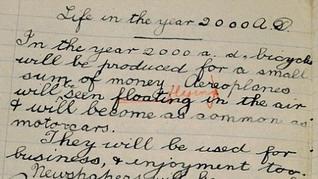 Life in the year 2000 A.D.
In the year 2000 a. d., bicycles
will be produced for a small
sum of money Aeroplanes
flying
will seen floating in the air
& will become as common as
motorcars.
They will be used for
business, & enjoyment too.
Newspapers will be